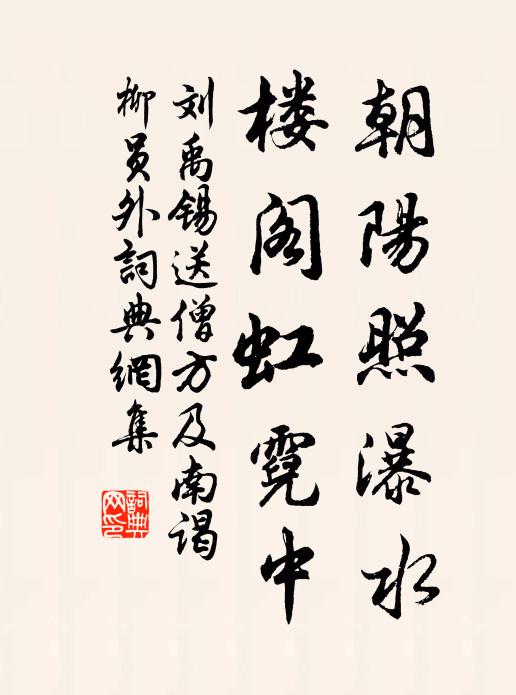 朝陽照瀑水
楼阁虹霓中
刘禹锡送僧方及南谒
柳員外詞典網集
詞典
网印